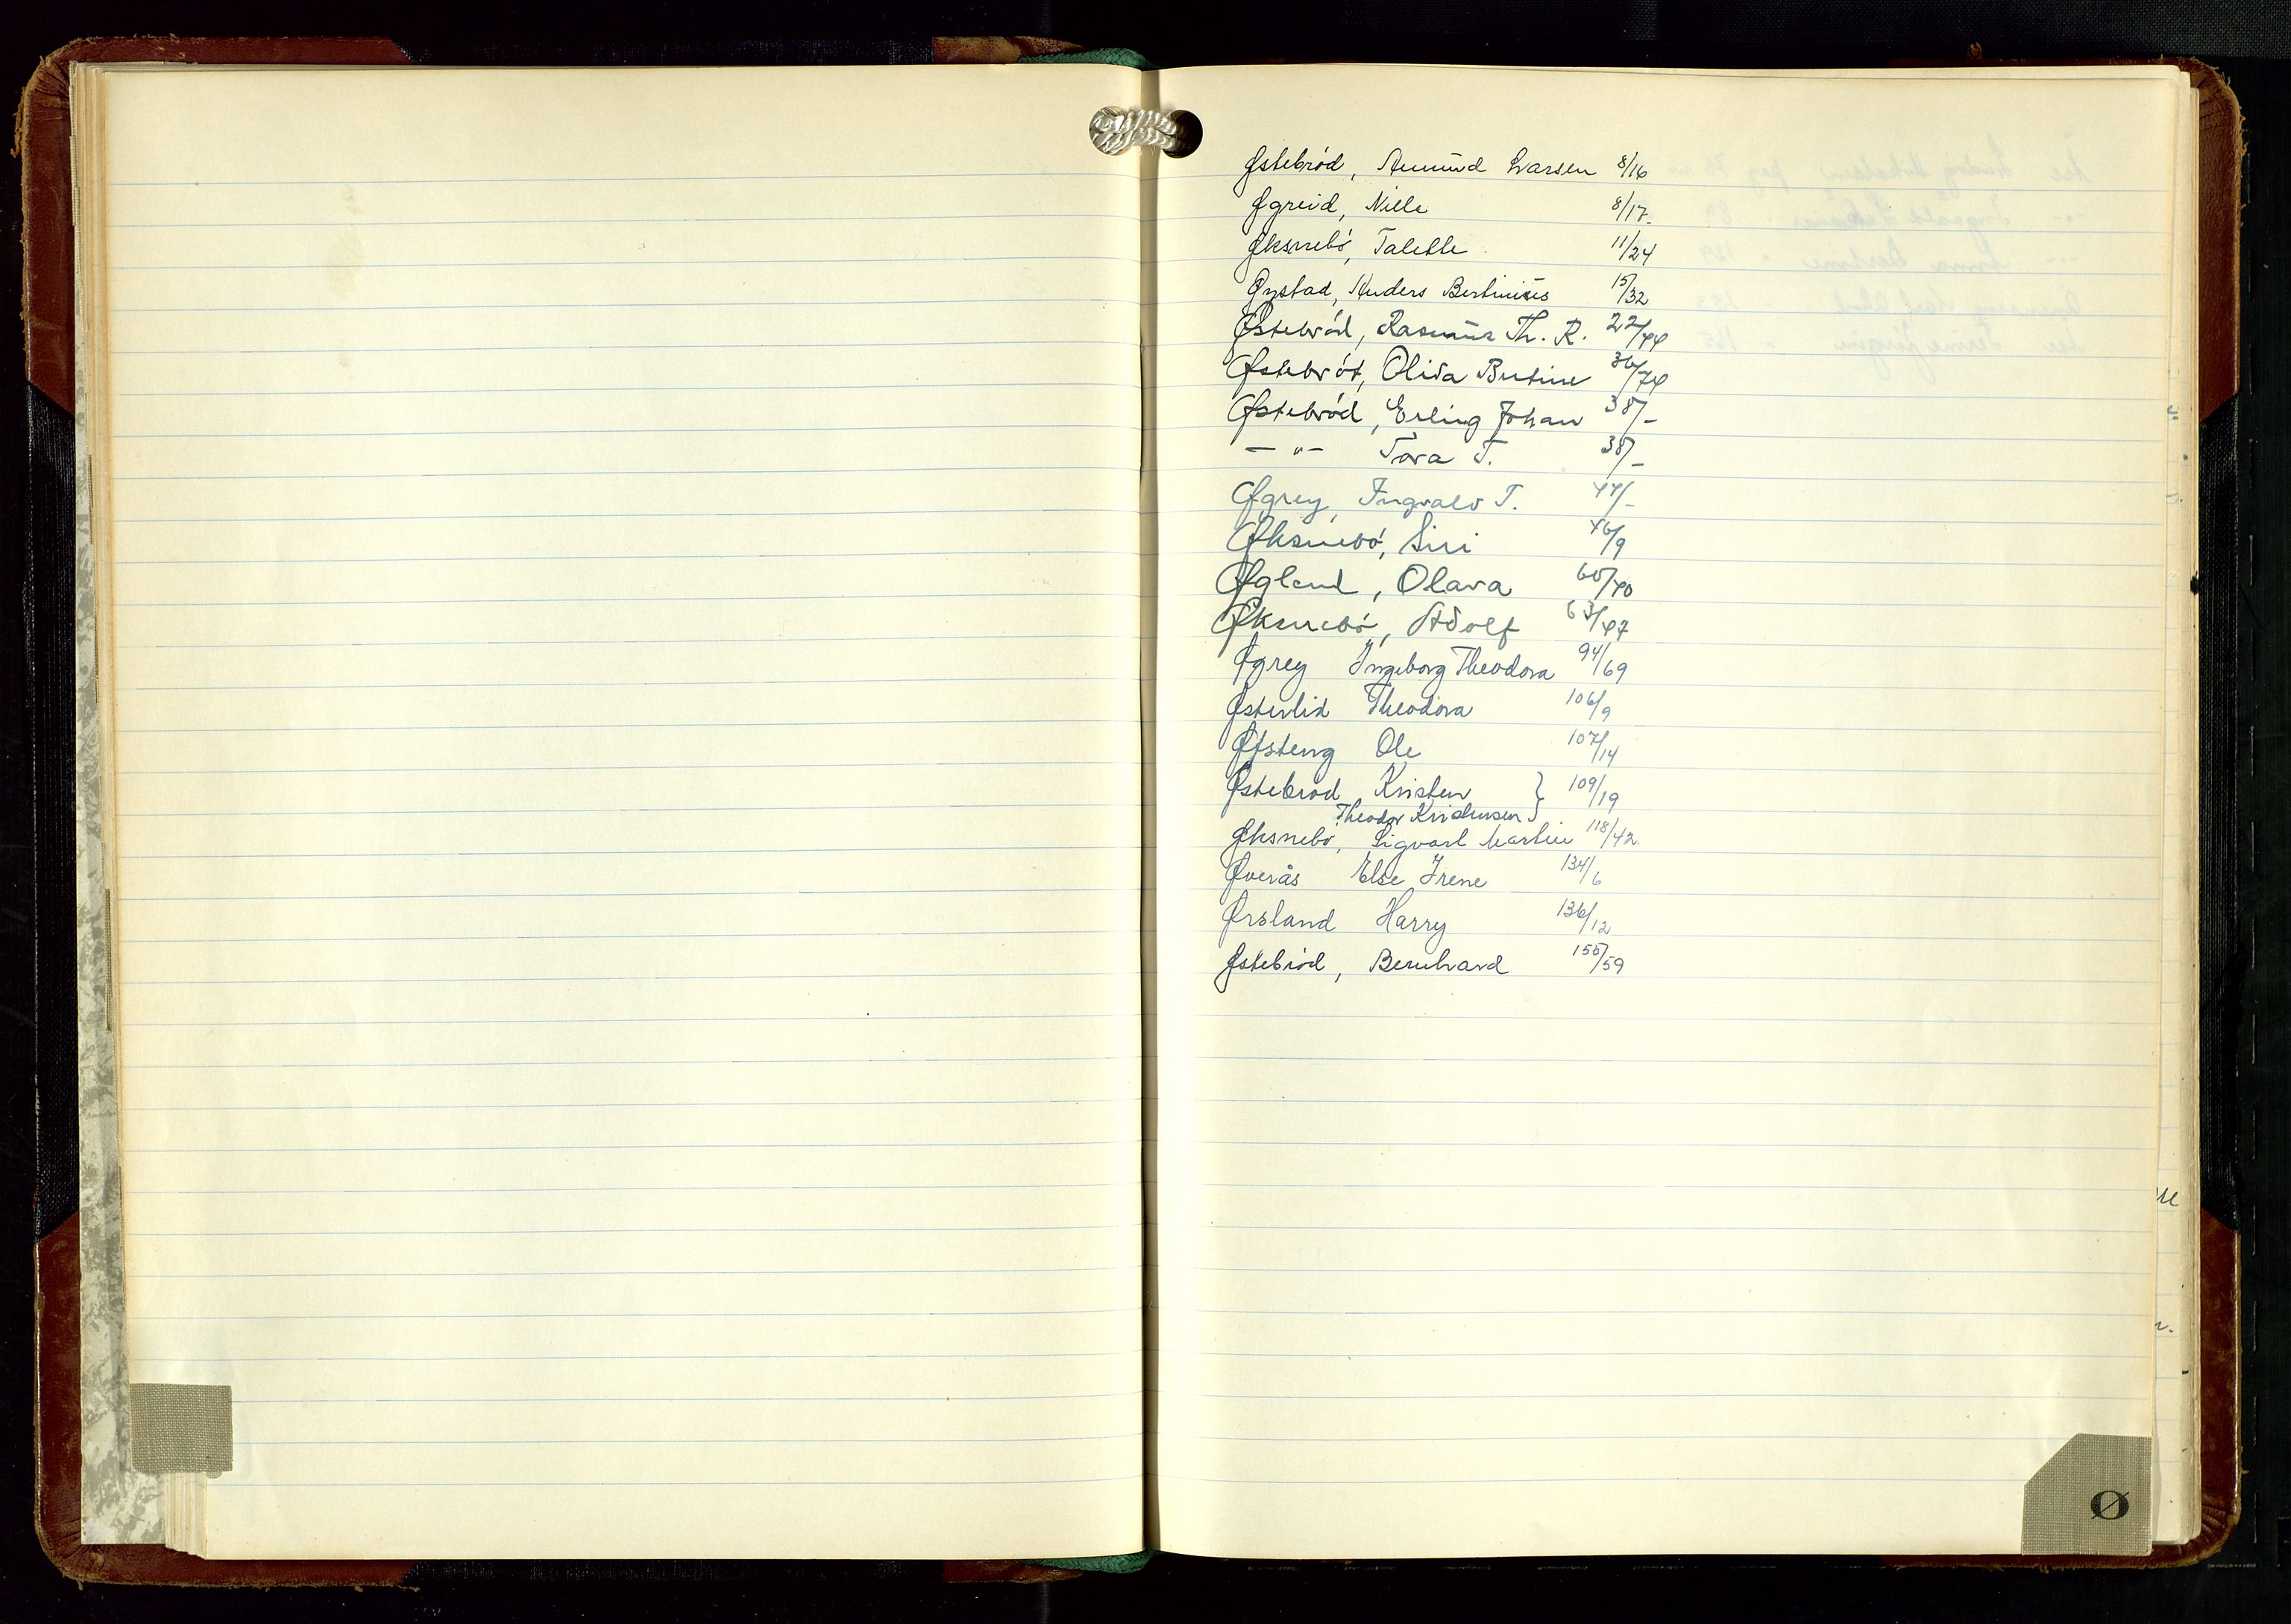 Østebröd, Amund Larsen 8/16
Øgreid, Nille 8/17-
Øksnebö, Talette 11/24
Øystad, Anders Bertinius 15/32
Østebröd, Rasmus Th. R. 22/44
Østebröt, Olida Bertine 36/74
Østebröd, Erling Johan 38/-
- " - Tora T. 38/-
Øgrey, Ingvald T. 44/-
Øksnebö, Siri 46/9
Øgland, Olava 60/40
Øksnebö, Adolf 63/47
Øgrey Ingeborg Theodora 94/69
Østerlid Theodora 106/9
Øfsteng Ole 107/14
Østebröd Kristen } 109/19
Theodor Kristensen }
Øksnebö, Sigvart Martin 118/42
Øverås Else Irene 134/6
Ørsland Harry 136/12
Østebröd, Bernhard 155/59
Ø